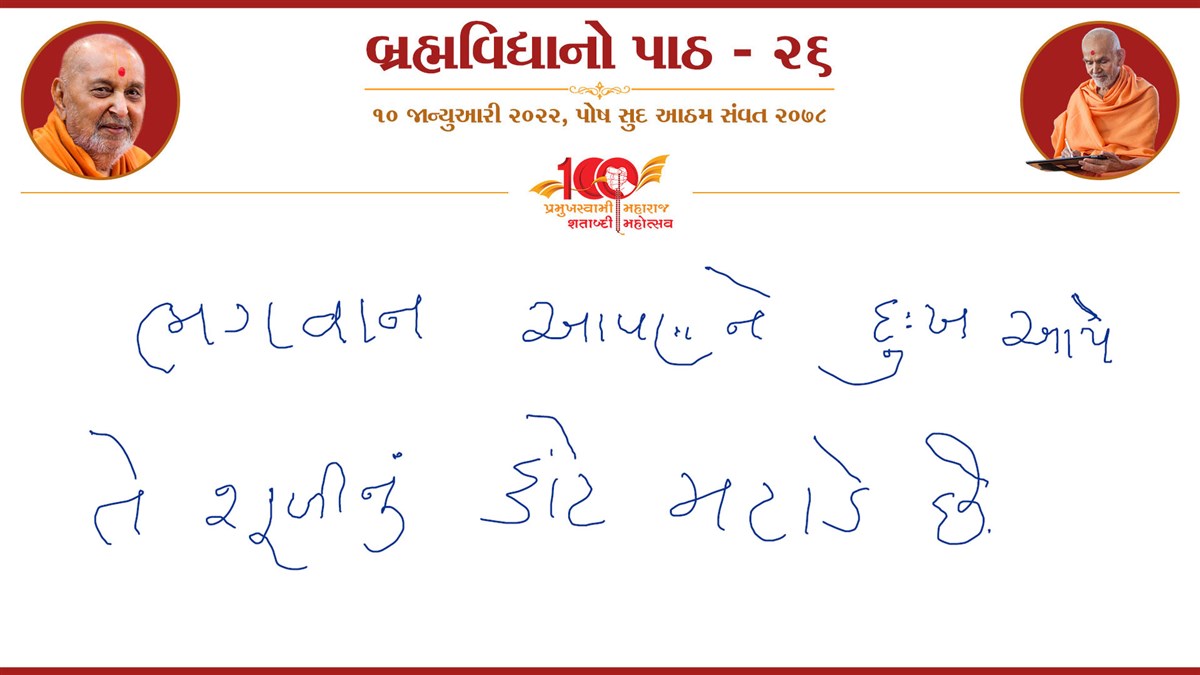 બ્રહ્મવિદ્યાનો પાઠ - ૨૬
૧૦ જાન્યુઆરી ૨૦૨૨, પોષ સુદ આઠમ સંવત ૨૦૭૮
100
પ્રમુખસ્વામી મહારાજ
શતાબ્દી મહોત્સવ
ભગવાન આપણને દુઃખ આપે
તે શૂળીનું કાંટે મટાડે છે.